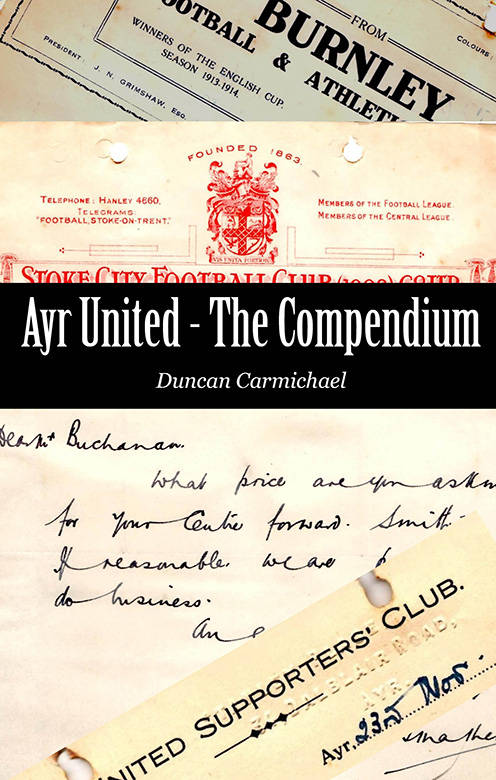 FROM
BURNLEY
COLOURS:
FOOTBALL & ATHLETIC
WINNERS OF THE ENGLISH CUP.
SEASON 1913-1914.
PRESIDENT: J. N. GRIMSHAW, ESQ.
FOUNDED 1863.
TELEPHONE: HANLEY 4660.
TELEGRAMS:
"FOOTBALL, STOKE-ON-TRENT."
MEMBERS OF THE FOOTBALL LEAGUE.
MEMBERS OF THE CENTRAL LEAGUE.
VIS UNITA FORTIOR
STOKE CITY FOOTBALL CLUB
Ayr United - The Compendium
Duncan Carmichael
Dear Mr Buchanan.
What price are you askin
for your Centre forward. Smith.
If reasonable. we are
do business.
UNITED SUPPORTERS' CLUB.
DALBLAIR ROAD,
AYR.
Ayr, 23rd Nov.